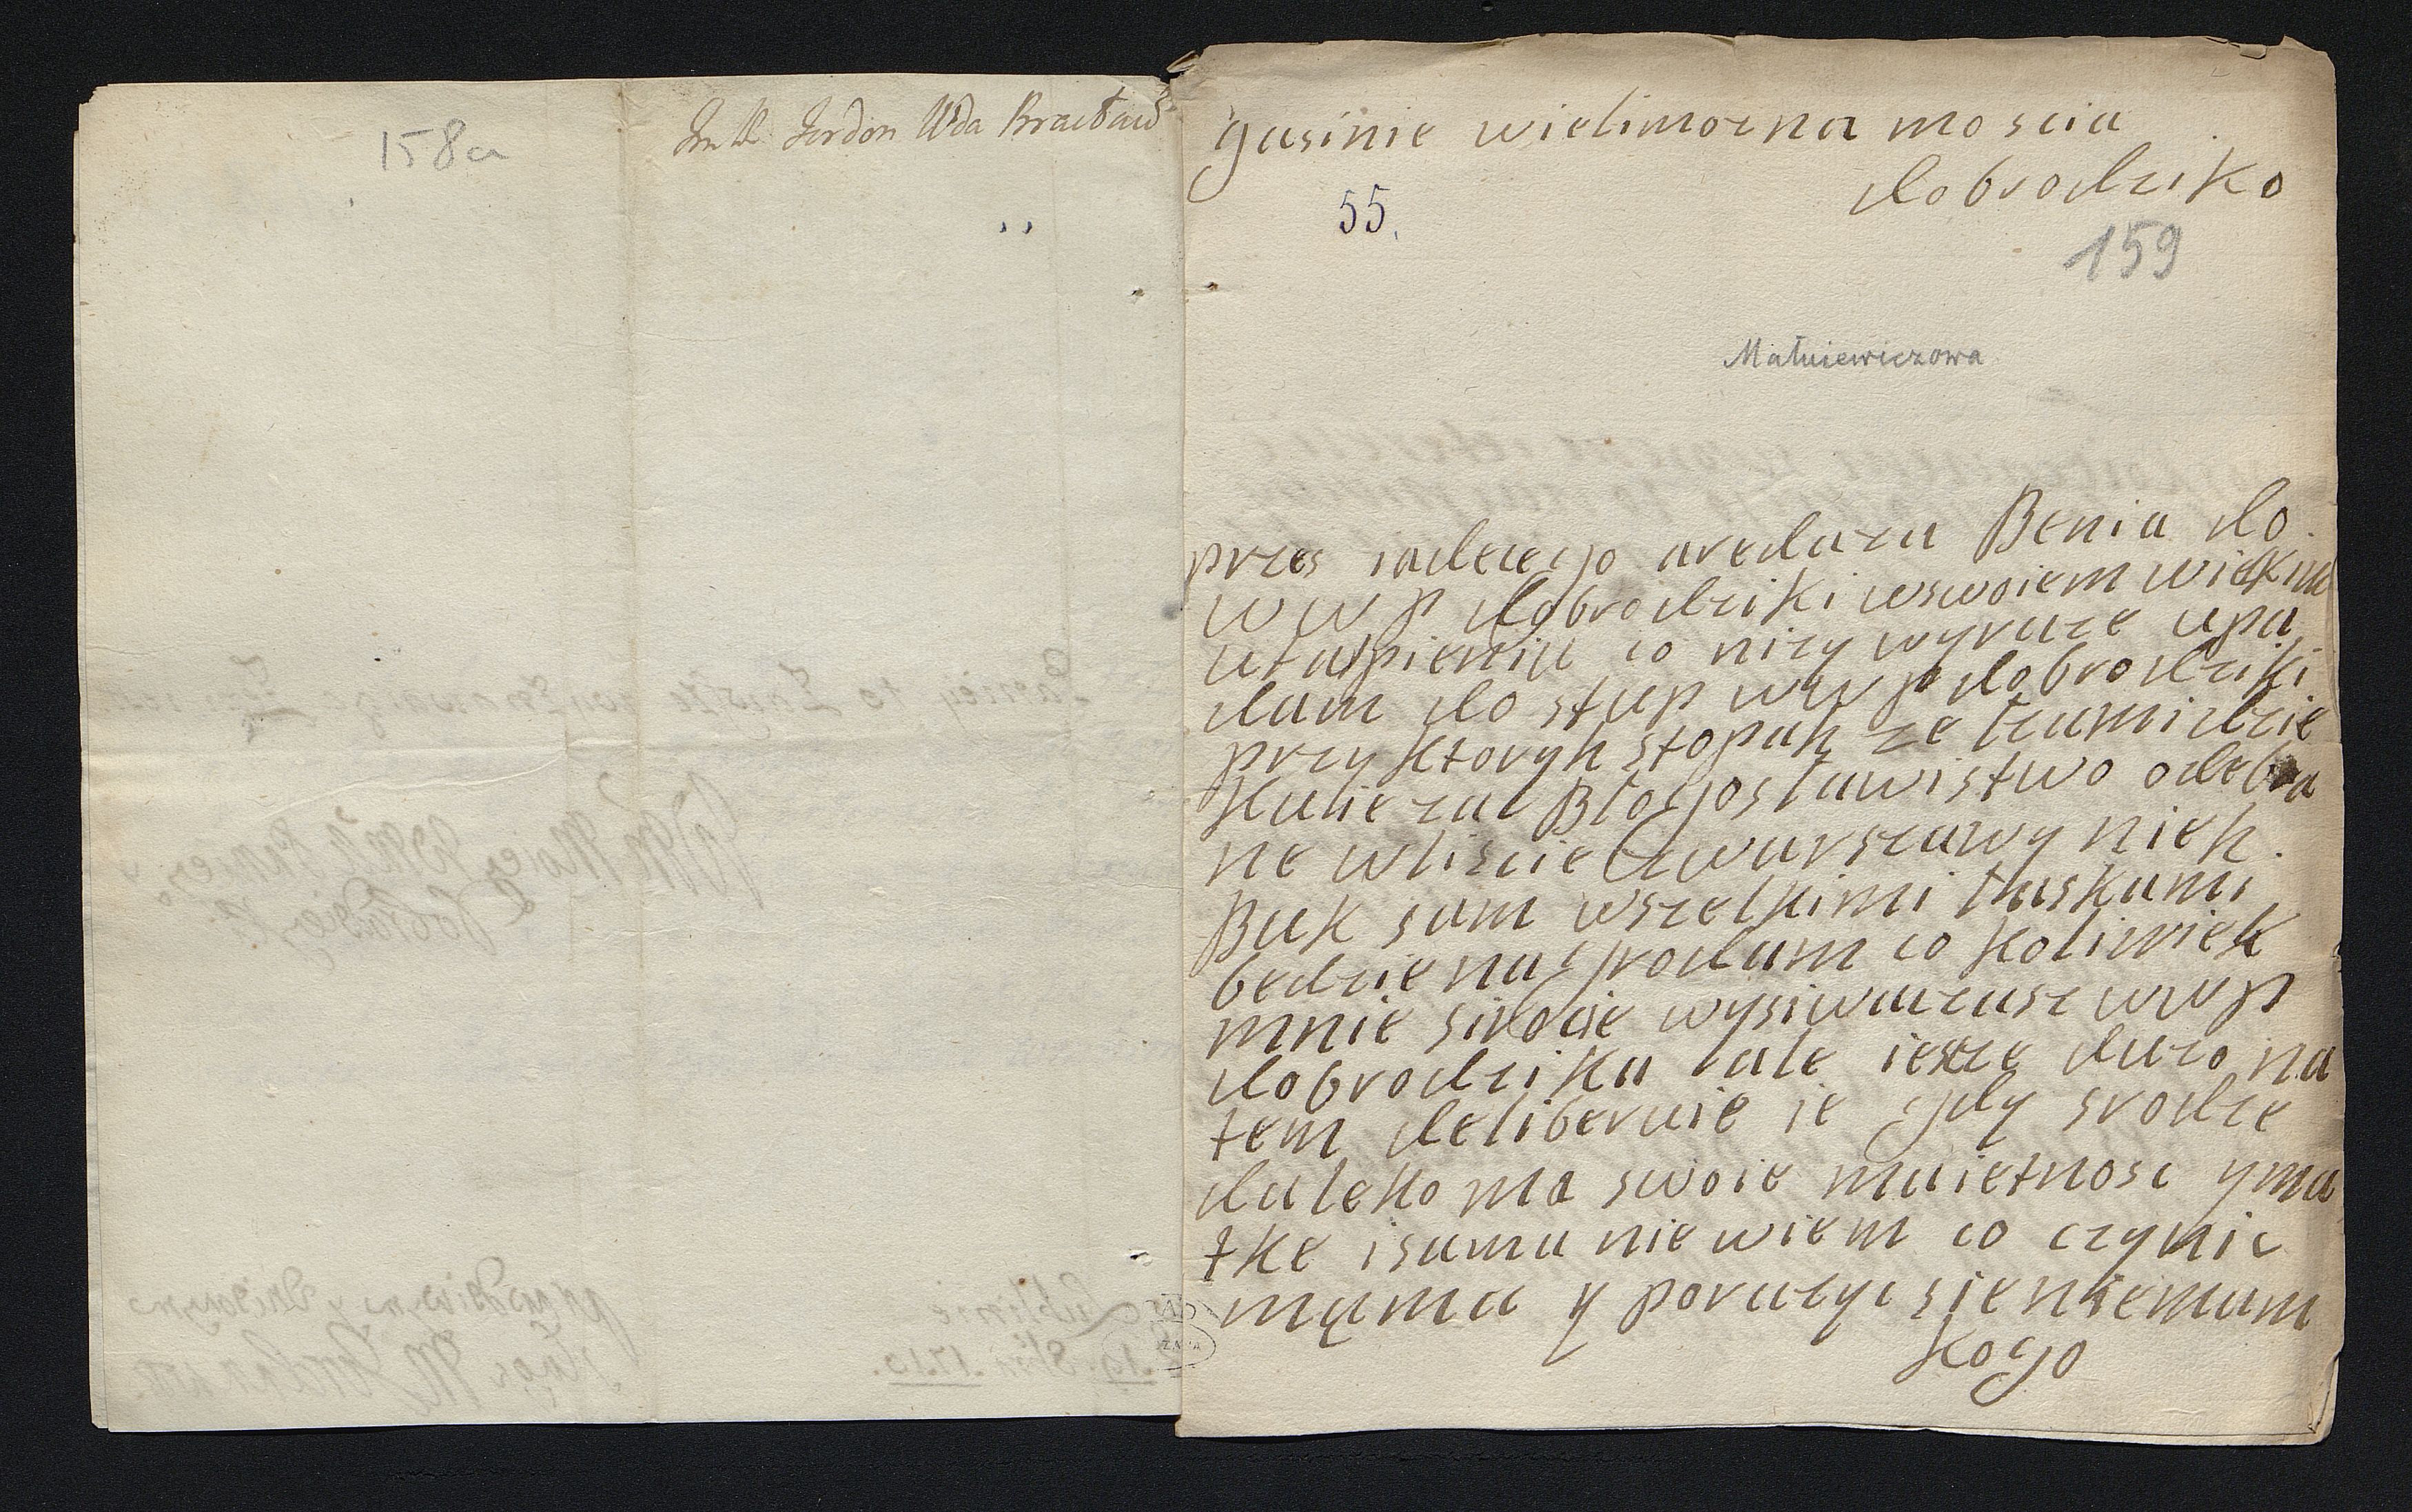 158a
Jmć Jordon Wda Bracław
gasinie wielimozna moscia
dobrodziko
55.
159
Małuiewiczowa
przes iadecego aredaza Benia do
w w p dobrodziki wswoiem wielkim
utrapieniu co nizy wyraze upa
dam do stup w w p dobrodziki
przy ktoryh stopah ze lzami dzie
kuie za Błogosławistwo odebra
ne wliscie zwarszawy nieh
Buk sam wszelkimi łaskami
bedzie nagrodam co koliwiek
mnie sirocie wysiwiaczasz w w p
dobrodzika ale iesze duzo na
tem deliberuie ie gdy srodze
daleko ma swoie maietnosc y ma
tke isama niewiem co czynic
mąma y poradzyc sie niemam
kogo